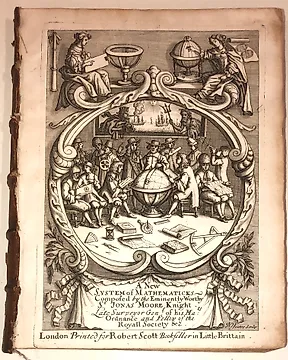 A New
SYSTEM of MATHEMATICKS
Composed by the Eminently Worthy
Sr. JONAS MOORE Knight
Late Surveyor Genll. of his Ma
Ordnance and Fellow of the
Royall Society &c.
London Printed for Robert Scott Bookseller in Little Brittain.